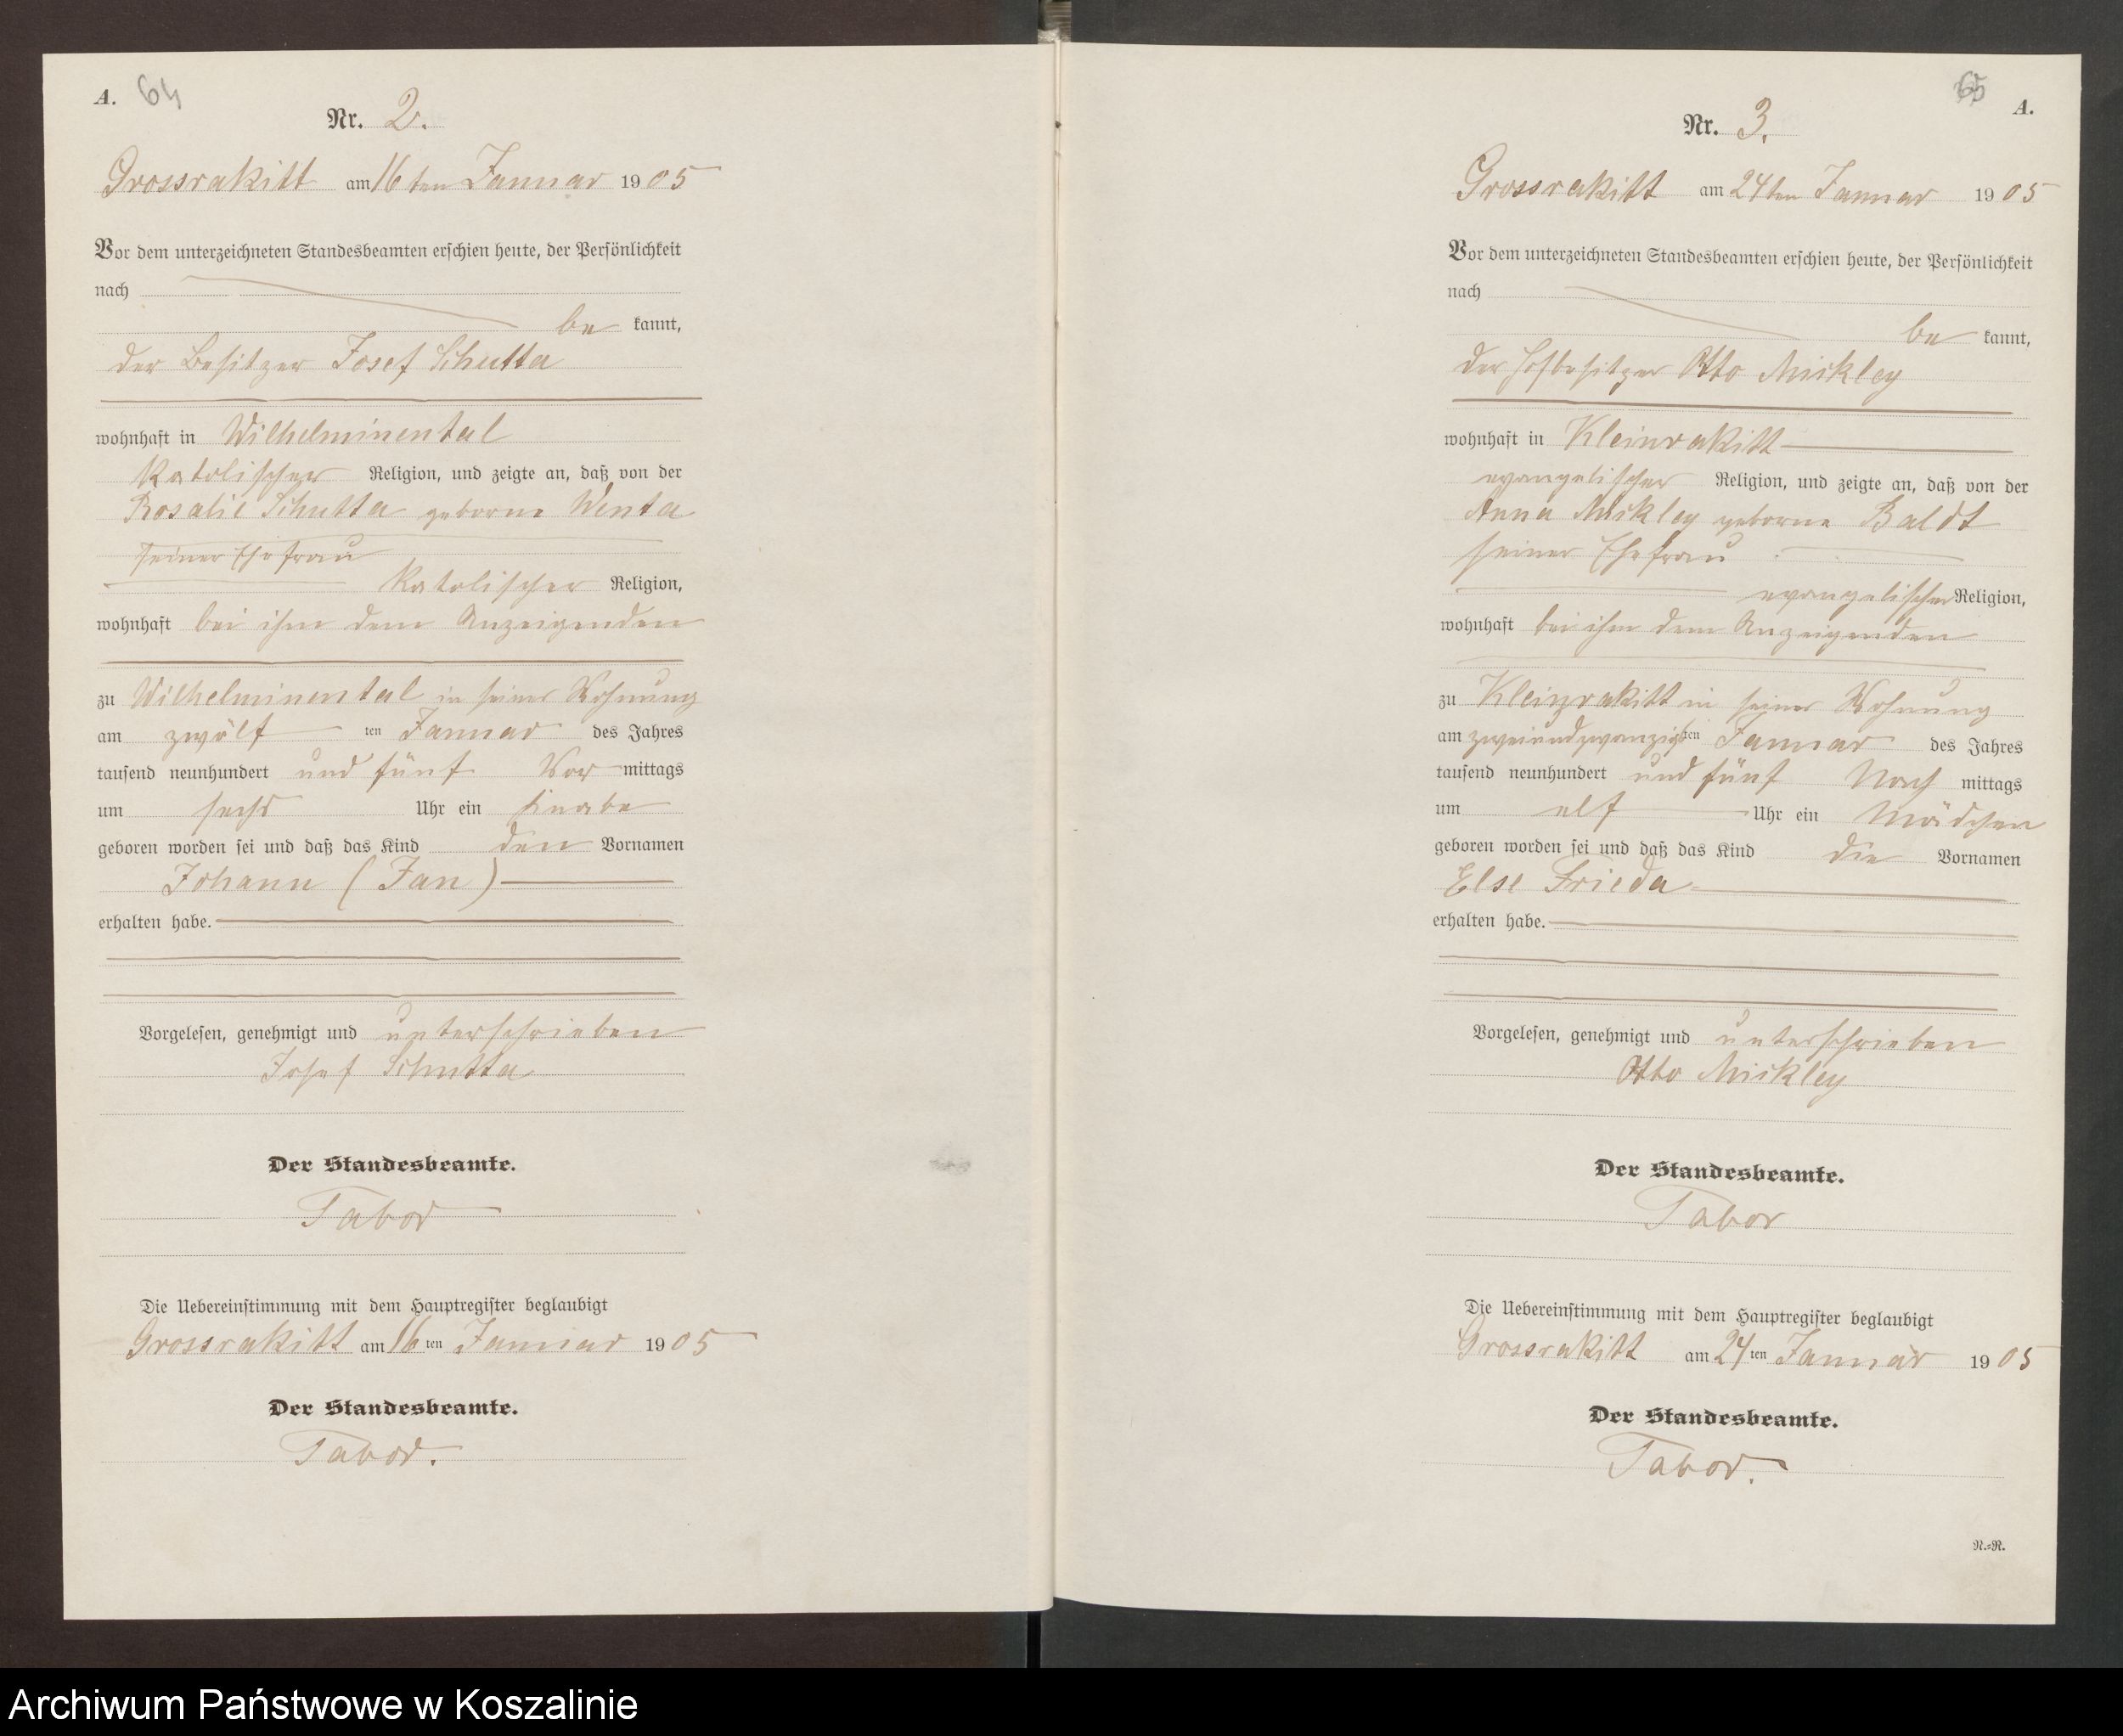 A. 64
Nr. 2.
Grossrakitt am 16ten Januar 1905
Vor dem unterzeichneten Standesbeamten erschien heute, der Persönlichkeit
nach
be kannt,
der Besitzer Josef Schutta
wohnhaft in Wilhelminental
katolischer Religion, und zeigte an, daß von der
Rosalie Schutta geborne Wenta
seiner Ehefrau
katolischer Religion,
wohnhaft bei ihm dem Anzeigenden
zu Wilhelminental in seiner Wohnung
am zwölf ten Januar des Jahres
tausend neunhundert und fünf Vor mittags
um sechs Uhr ein Knabe
geboren worden sei und daß das Kind den Vornamen
Johann (Jan)
erhalten habe.
Vorgelesen, genehmigt und unterschrieben
Josef Schutta
Der Standesbeamte.
Tabor
Die Uebereinstimmung mit dem Hauptregister beglaubigt
Grossrakitt am 16ten Januar 1905
Der Standesbeamte.
Tabor.
65 A.
Nr. 3.
Grossrakitt am 24ten Januar 1905
Vor dem unterzeichneten Standesbeamten erschien heute, der Persönlichkeit
nach
be kannt,
der Hofbesitzer Otto Mickley
wohnhaft in Kleinrakitt
evangelischer Religion, und zeigte an, daß von der
Anna Mickley geborne Baldt
seiner Ehefrau
evangelischer Religion,
wohnhaft bei ihm dem Anzeigenden
zu Kleinrakitt in seiner Wohnung
am zweiundzwanzigsten Januar des Jahres
tausend neunhundert und fünf Nach mittags
um elf Uhr ein Mädchen
geboren worden sei und daß das Kind die Vornamen
Else Frieda
erhalten habe.
Vorgelesen, genehmigt und unterschrieben
Otto Mickley
Der Standesbeamte.
Tabor
Die Uebereinstimmung mit dem Hauptregister beglaubigt
Grossrakitt am 24ten Januar 1905
Der Standesbeamte.
Tabor.
R.=R.
Archiwum Państwowe w Koszalinie